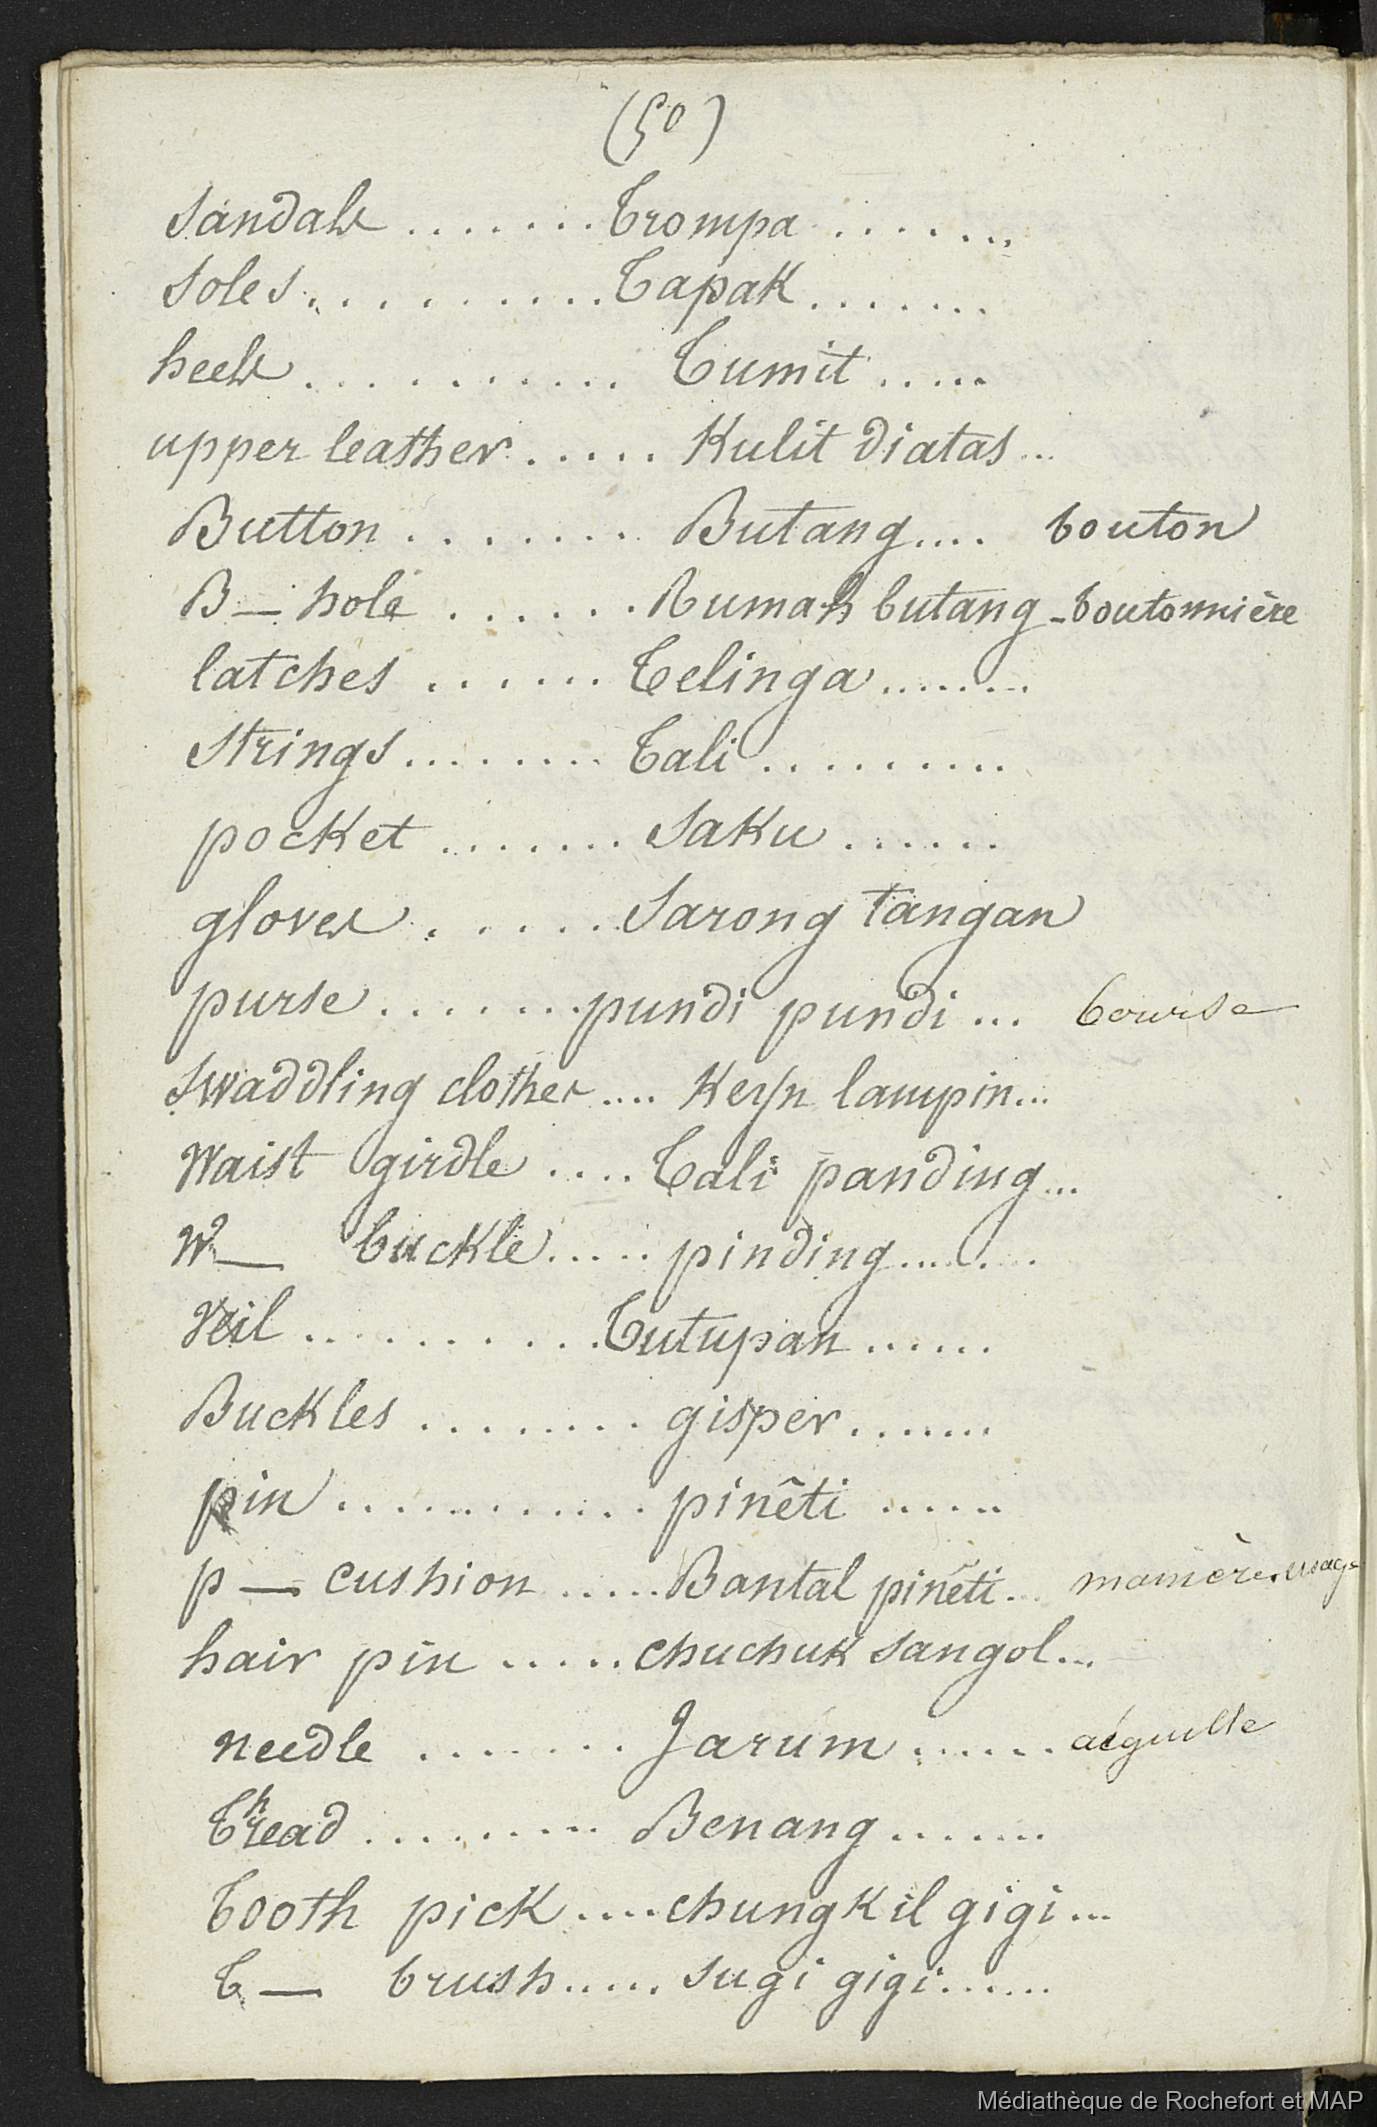 (50)
Sandals ........ Trompa .......
Soles .......... Tapak .......
heels ........... Tumit .....
upper leather ..... Kulit diatas ...
Button ........ Butang .... bouton
B — hole ...... Rumah butang - boutonnière
latches ...... Telinga .......
Strings ........ Tali .........
pocket ........ Saku ......
gloves ...... Sarong tangan
purse ....... pundi pundi ... bourse
Swaddling clothes .... lampin ...
Waist girdle .... Tali panding ...
W — buckle ..... pinding .......
Veil .......... Tutupan ......
Buckles ........ gisper .......
pin ........... pinêti .....
p — cushion ..... Bantal pinêti ...
hair pin ..... chuchuk Sangol ...
needle ....... Jarum ...... aiguille
Thread ......... Benang .......
Tooth pick .... chungkil gigi ...
T — brush ..... sugi gigi ......
Médiathèque de Rochefort et MAP